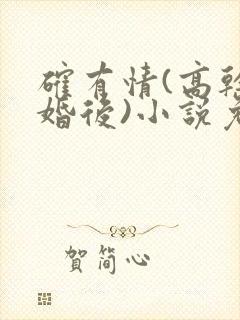 確有情(高幹
婚後)小說免
賀簡心